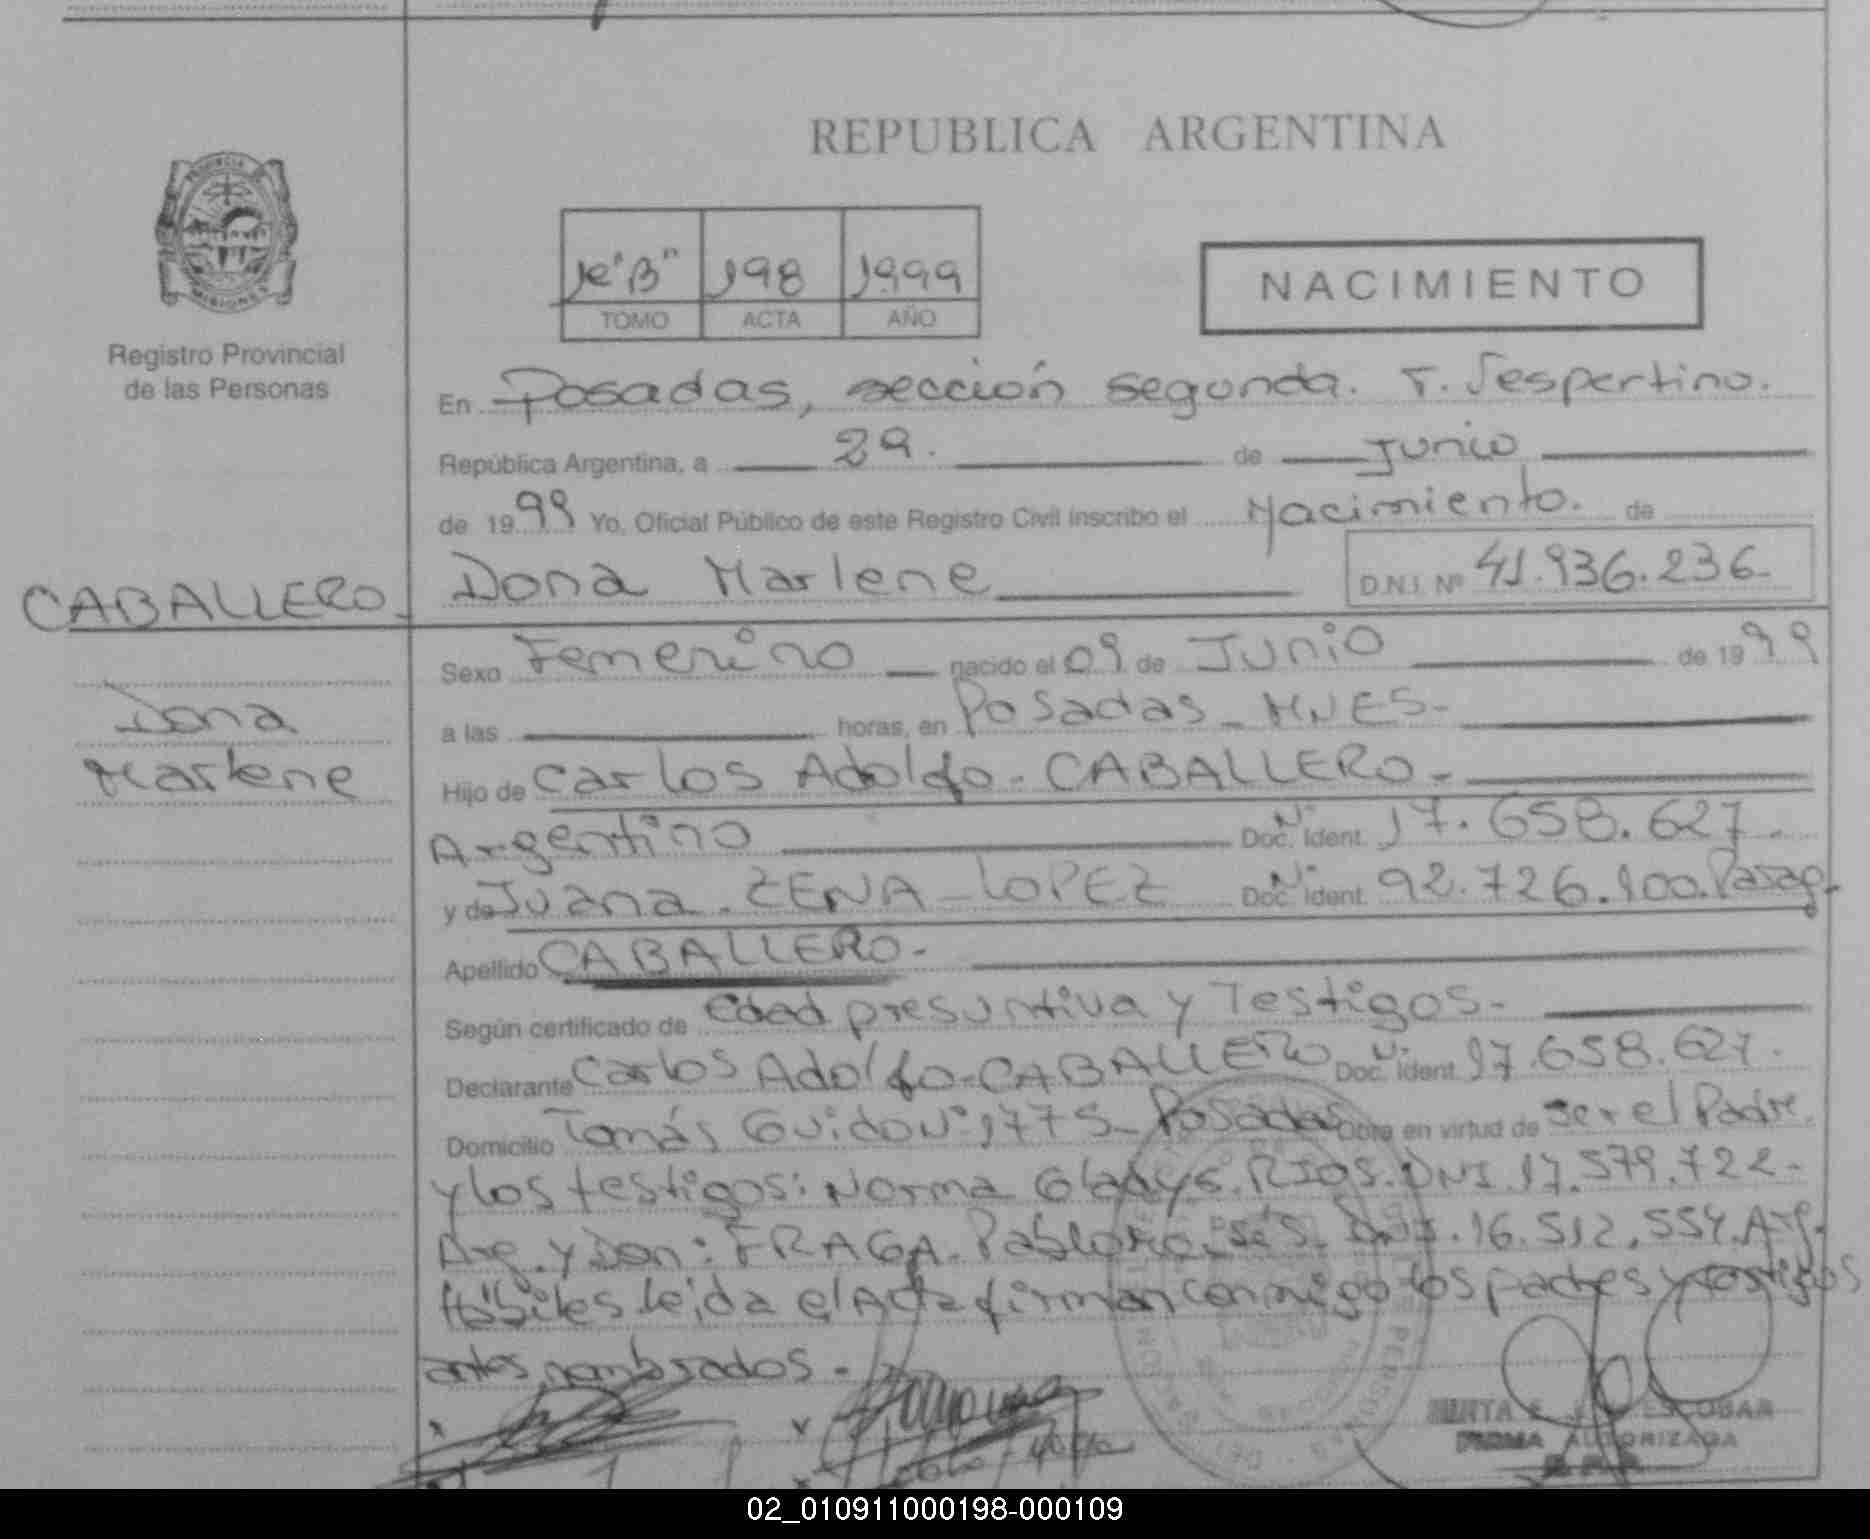 REPUBLICA ARGENTINA
PROVINCIA
MISIONES
Registro Provincial
de las Personas
1º"B" 198 1999
TOMO ACTA AÑO
NACIMIENTO
En Posadas, sección segunda. T. Vespertino.
República Argentina, a 29. de Junio
de 1999 Yo, Oficial Público de este Registro Civil inscribo el Nacimiento. de
CABALLERO
Dona Marlene D.N.I. Nº 41.936.236
Sexo Femenino nacido el 09 de Junio de 1999
Dona
Marlene
a las horas, en Posadas - MNES-
Hijo de Carlos Adolfo - CABALLERO -
Argentino Doc. Nº Ident. 17.658.627.
y de Juana. ZENA - LOPEZ Doc. Nº Ident. 92.726.100. Parag.
Apellido CABALLERO -
Según certificado de edad presuntiva y Testigos -
Declarante Carlos Adolfo - CABALLERO Doc. Nº Ident. 17.658.627.
Domicilio Tomás Guido Nº 1775 - Posadas Obra en virtud de ser el Padre.
y los testigos: Norma Gladys. RIOS. DNI. 17.579.722-
Arg. y Don: FRAGA. Pablo DNI. 16.512.554. Arg.
Hábiles. leida el Acta firman conmigo los padres y testigos
antes nombrados -
ESCOBAR
FIRMA AUTORIZADA
02_010911000198-000109